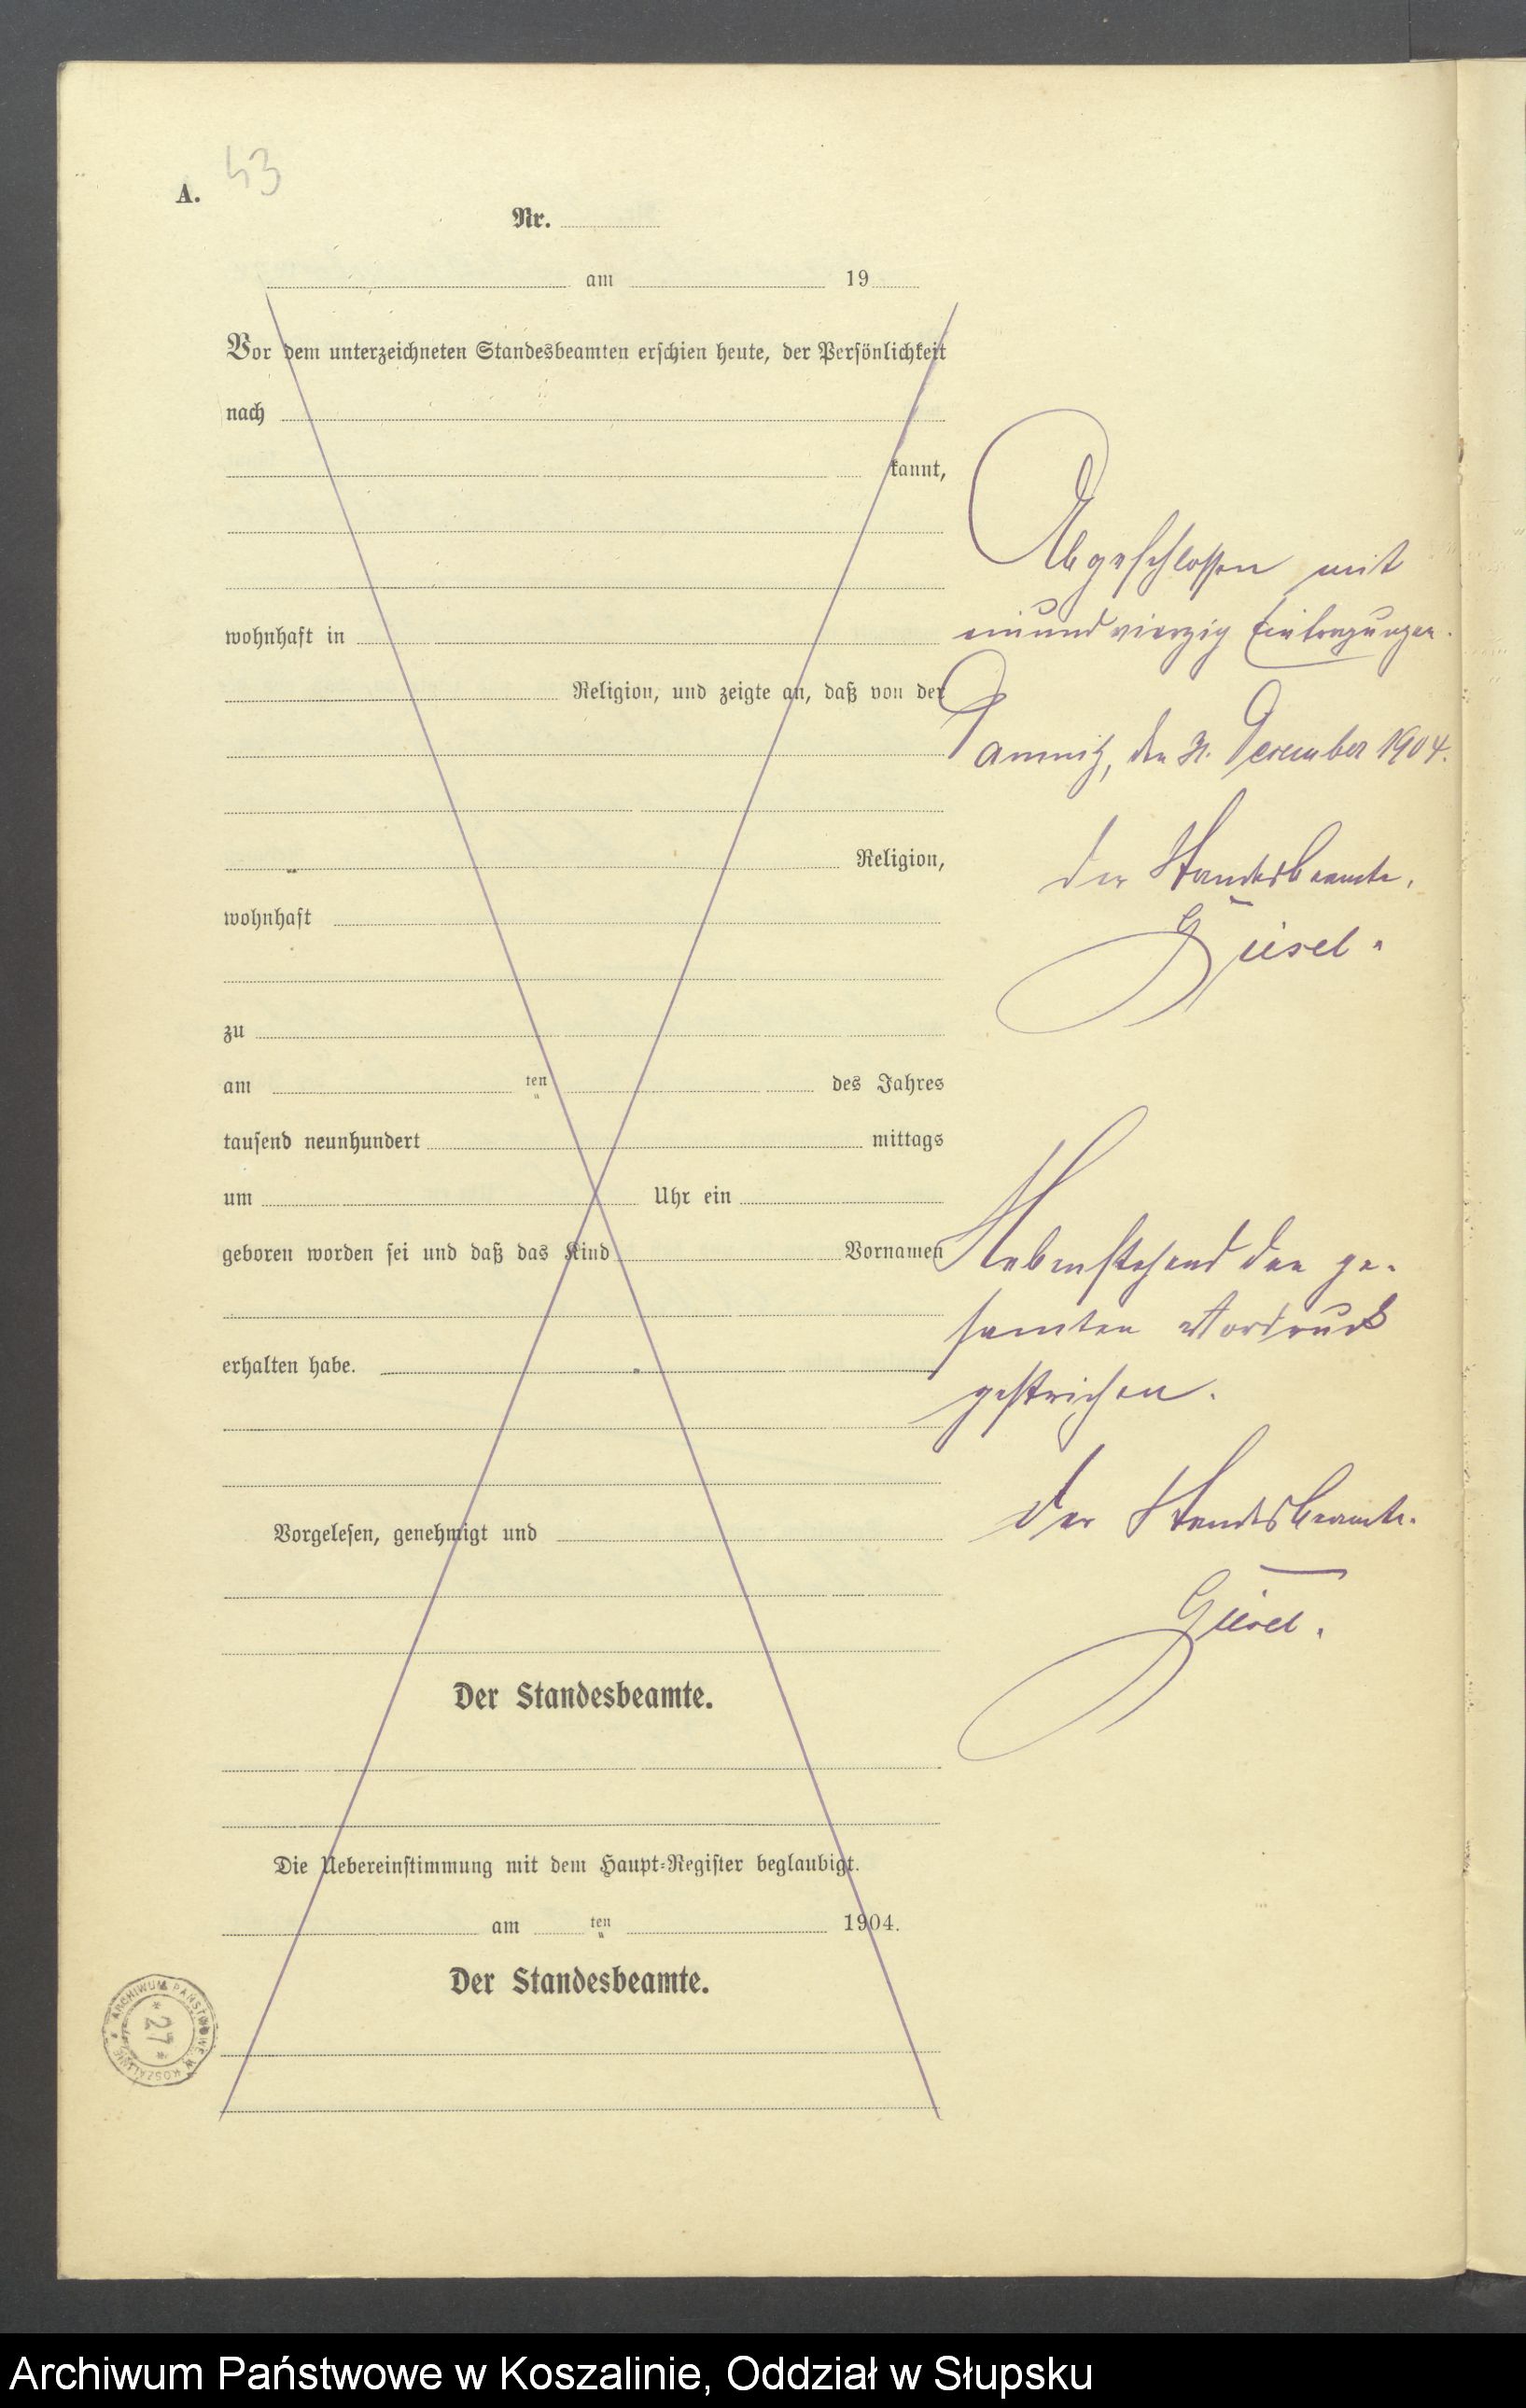 A.
43
Nr.
am 19
Vor dem unterzeichneten Standesbeamten erschien heute, der Persönlichkeit
nach
kannt,
wohnhaft in
Religion, und zeigte an, daß von der
Religion,
wohnhaft
zu
am ten des Jahres
tausend neunhundert mittags
um Uhr ein
geboren worden sei und daß das Kind Vornamen
erhalten habe.
Vorgelesen, genehmigt und
Der Standesbeamte.
Die Uebereinstimmung mit dem Haupt-Register beglaubigt.
am ten 1904.
Der Standesbeamte.
Abgeschlossen mit
einund vierzig Eintragungen.
Damnitz, den 31. Dezember 1904.
der Standesbeamte.
Nebenstehend den ge-
samten Vordruck
gestrichen.
der Standesbeamte.
ARCHIWUM PAŃSTWOWE W KOSZALINIE
* 27 *
Archiwum Państwowe w Koszalinie, Oddział w Słupsku